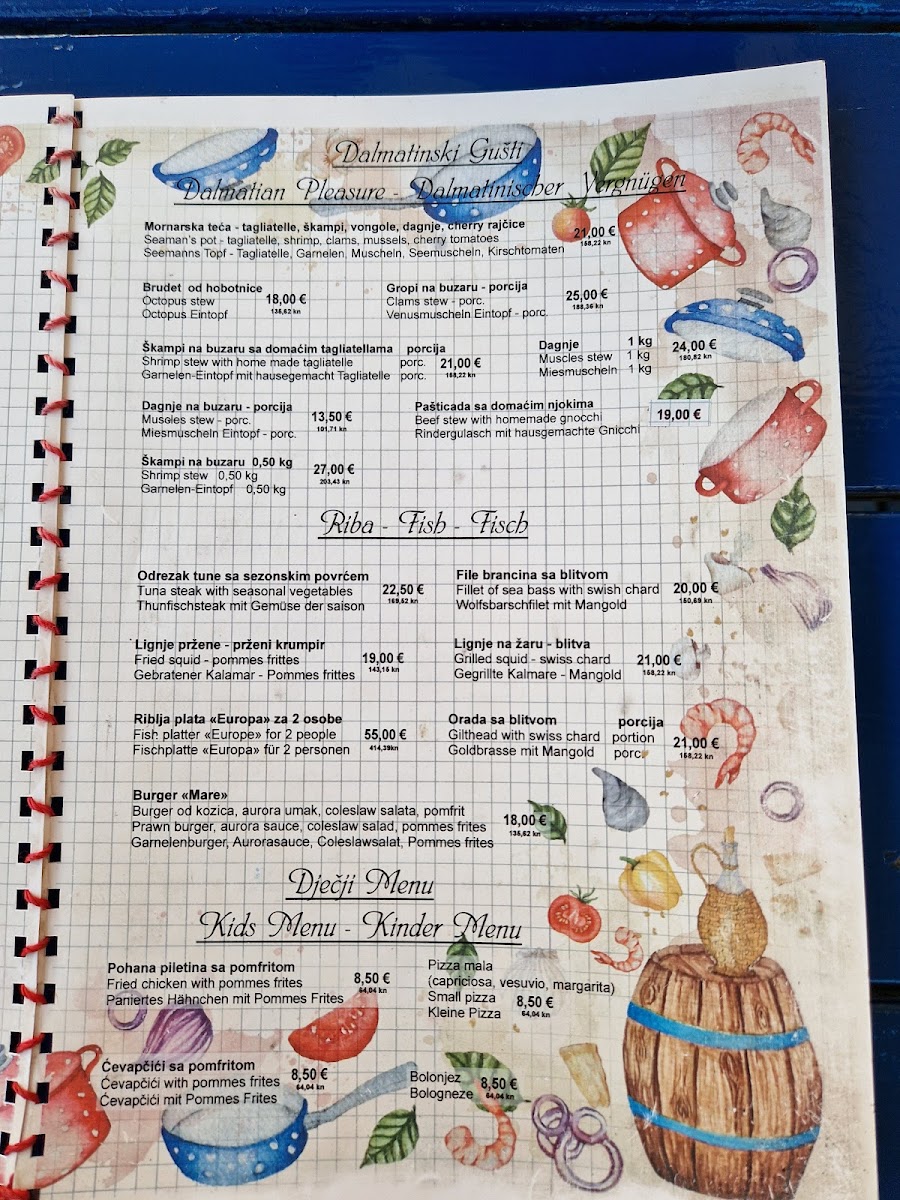 Dalmatinski Gušti
Dalmatian Pleasure - Dalmatinischer Vergnügen
Mornarska teća - tagliatelle, škampi, vongole, dagnje, cherry rajčice
Seaman's pot - tagliatelle, shrimp, clams, mussels, cherry tomatoes
Seemanns Topf - Tagliatelle, Garnelen, Muscheln, Seemuscheln, Kirschtomaten
21,00 €
158,22 kn
Brudet od hobotnice
Octopus stew
Octopus Eintopf
18,00 €
135,62 kn
Gropi na buzaru - porcija
Clams stew - porc.
Venusmuscheln Eintopf - porc.
25,00 €
188,36 kn
Škampi na buzaru sa domaćim tagliatellama porcija
Shrimp stew with home made tagliatelle porc.
Garnelen-Eintopf mit hausegemacht Tagliatelle porc.
21,00 €
158,22 kn
Dagnje 1 kg
Muscles stew 1 kg
Miesmuscheln 1 kg
24,00 €
180,82 kn
Dagnje na buzaru - porcija
Muscles stew - porc.
Miesmuscheln Eintopf - porc.
13,50 €
101,71 kn
Pašticada sa domaćim njokima
Beef stew with homemade gnocchi
Rindergulasch mit hausgemachte Gnicchi
19,00 €
Škampi na buzaru 0,50 kg
Shrimp stew 0,50 kg
Garnelen-Eintopf 0,50 kg
27,00 €
203,43 kn
Riba - Fish - Fisch
Odrezak tune sa sezonskim povrćem
Tuna steak with seasonal vegetables
Thunfischsteak mit Gemüse der saison
22,50 €
169,52 kn
File brancina sa blitvom
Fillet of sea bass with swish chard
Wolfsbarschfilet mit Mangold
20,00 €
150,69 kn
Lignje pržene - prženi krumpir
Fried squid - pommes frittes
Gebratener Kalamar - Pommes frittes
19,00 €
143,15 kn
Lignje na žaru - blitva
Grilled squid - swiss chard
Gegrillte Kalmare - Mangold
21,00 €
158,22 kn
Riblja plata «Europa» za 2 osobe
Fish platter «Europe» for 2 people
Fischplatte «Europa» für 2 personen
55,00 €
414,39kn
Orada sa blitvom porcija
Gilthead with swiss chard portion
Goldbrasse mit Mangold porc.
21,00 €
158,22 kn
Burger «Mare»
Burger od kozica, aurora umak, coleslaw salata, pomfrit
Prawn burger, aurora sauce, coleslaw salad, pommes frites
Garnelenburger, Aurorasauce, Coleslawsalat, Pommes frites
18,00 €
135,62 kn
Dječji Menu
Kids Menu - Kinder Menu
Pohana piletina sa pomfritom
Fried chicken with pommes frites
Paniertes Hähnchen mit Pommes Frites
8,50 €
64,04 kn
Pizza mala
(capriciosa, vesuvio, margarita)
Small pizza
Kleine Pizza
8,50 €
64,04 kn
Ćevapčići sa pomfritom
Ćevapčići with pommes frites
Ćevapčići mit Pommes Frites
8,50 €
64,04 kn
Bolonjez
Bologneze
8,50 €
64,04 kn